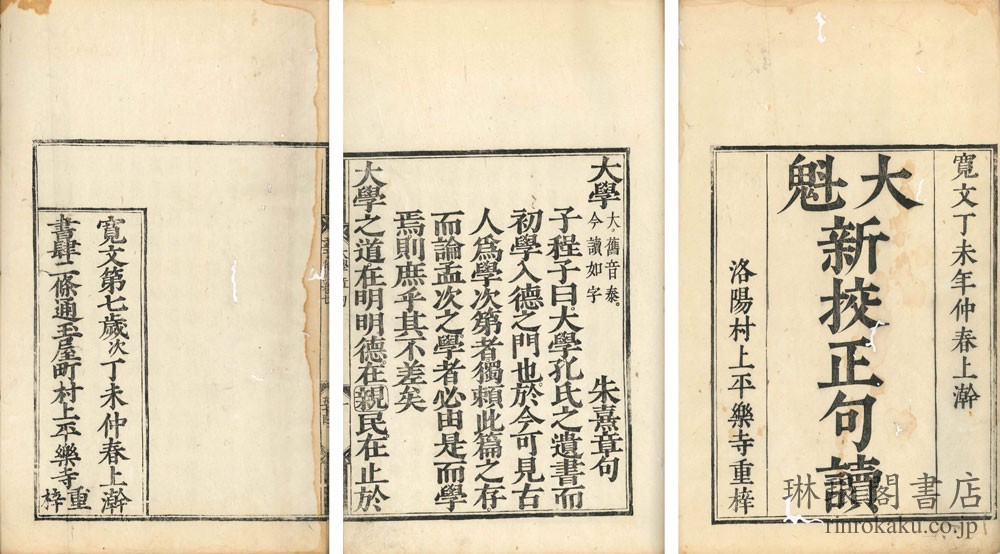 寬文丁未年仲春上澣
大魁
新挍正句讀
洛陽村上平樂寺重梓
大學
大舊音泰。
今讀如字
朱熹章句
子程子曰大學孔氏之遺書而
初學入德之門也於今可見古
人爲學次第者獨賴此篇之存
而論孟次之學者必由是而學
焉則庶乎其不差矣
大學之道在明明德在親民在止於
寬文第七歲次丁未仲春上澣
書肆二條通玉屋町村上平樂寺重梓
琳琅閣書店
rinrokaku.co.jp